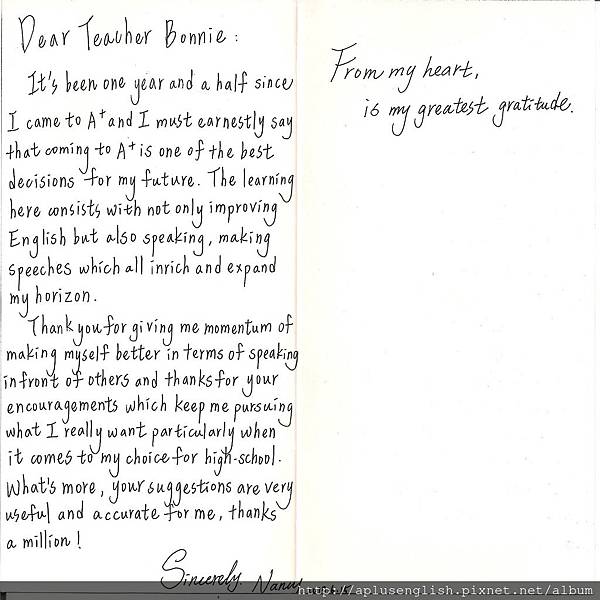 Dear Teacher Bonnie :
It's been one year and a half since
I came to A+ and I must earnestly say
that coming to A+ is one of the best
decisions for my future. The learning
here consists with not only improving
English but also speaking, making
speeches which all inrich and expand
my horizon.
Thank you for giving me momentum of
making myself better in terms of speaking
infront of others and thanks for your
encouragements which keep me pursuing
what I really want particularly when
it comes to my choice for high-school.
What's more, your suggestions are very
useful and accurate for me, thanks
a million!
Sincerely.
From my heart,
is my greatest gratitude.
http://aplusenglish.pixnet.net/album